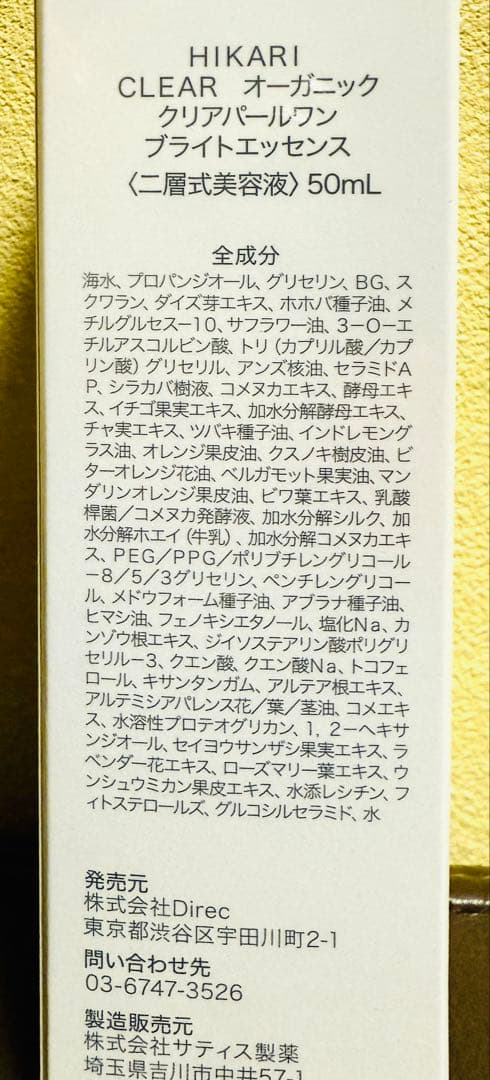 HIKARI
CLEAR オーガニック
クリアパールワン
ブライトエッセンス
〈二層式美容液〉50mL
全成分
海水、プロパンジオール、グリセリン、BG、ス
クワラン、ダイズ芽エキス、ホホバ種子油、メ
チルグルセス－10、サフラワー油、3－O－エ
チルアスコルビン酸、トリ（カプリル酸／カプ
リン酸）グリセリル、アンズ核油、セラミドA
P、シラカバ樹液、コメヌカエキス、酵母エキ
ス、イチゴ果実エキス、加水分解酵母エキス、
チャ実エキス、ツバキ種子油、インドレモング
ラス油、オレンジ果皮油、クスノキ樹皮油、ビ
ターオレンジ花油、ベルガモット果実油、マン
ダリンオレンジ果皮油、ビワ葉エキス、乳酸
桿菌／コメヌカ発酵液、加水分解シルク、加
水分解ホエイ（牛乳）、加水分解コメヌカエキ
ス、PEG／PPG／ポリブチレングリコール
－8／5／3グリセリン、ペンチレングリコー
ル、メドウフォーム種子油、アブラナ種子油、
ヒマシ油、フェノキシエタノール、塩化Na、カ
ンゾウ根エキス、ジイソステアリン酸ポリグリ
セリル－3、クエン酸、クエン酸Na、トコフェ
ロール、キサンタンガム、アルテア根エキス、
アルテミシアパレンス花／葉／茎油、コメエキ
ス、水溶性プロテオグリカン、1，2－ヘキサ
ンジオール、セイヨウサンザシ果実エキス、ラ
ベンダー花エキス、ローズマリー葉エキス、ウ
ンシュウミカン果皮エキス、水添レシチン、フ
ィトステロールズ、グルコシルセラミド、水
発売元
株式会社Direc
東京都渋谷区宇田川町2-1
問い合わせ先
03-6747-3526
製造販売元
株式会社サティス製薬
埼玉県吉川市中井57-1